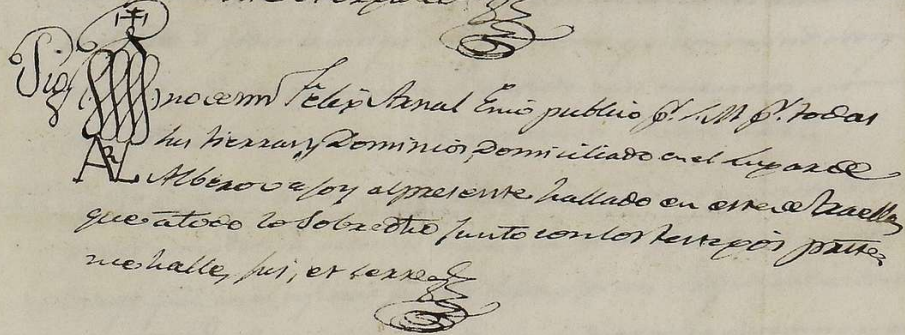 Sig no de mi Felix Arnal Esno publico pr. S. M pr. todas
sus tierras y Dominios, Domiciliado en el Lugar de
Albero y a hoy al presente hallado en este de
que a todo lo Sobredho junto con los testigos pnte
me halle, fui, et cerre